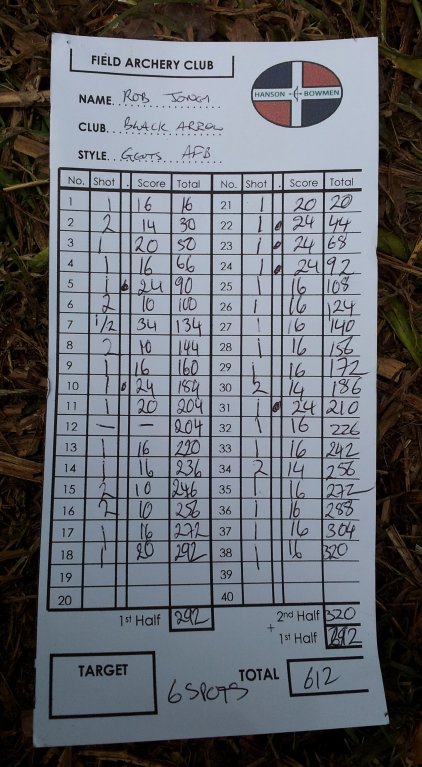 FIELD ARCHERY CLUB
HANSON BOWMEN
NAME... ROB JONES
CLUB... BLACK ARROW
STYLE... GENTS AFB
No. Shot . Score Total No. Shot . Score Total
1 1 16 16 21 1 20 20
2 2 14 30 22 1 • 24 44
3 1 20 50 23 1 • 24 68
4 1 16 66 24 1 • 24 92
5 1 • 24 90 25 1 16 108
6 2 10 100 26 1 16 124
7 1/2 34 134 27 1 16 140
8 2 10 144 28 1 16 156
9 1 16 160 29 1 16 172
10 1 • 24 184 30 2 14 186
11 1 20 204 31 1 • 24 210
12 — — 204 32 1 16 226
13 1 16 220 33 1 16 242
14 1 16 236 34 2 14 256
15 2 10 246 35 1 16 272
16 2 10 256 36 1 16 288
17 1 16 272 37 1 16 304
18 1 20 292 38 1 16 320
19 39
20 40
1st Half 292 2nd Half 320
+ 1st Half 292
TARGET 6 SPOTS TOTAL 612